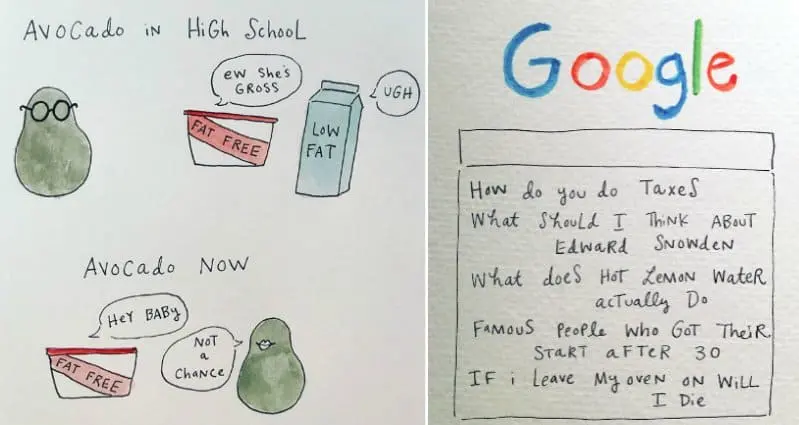 Avocado in High School
ew she's
GROSS
UGH
FAT FREE
LOW
FAT
Avocado Now
Hey BABY
NOT
a
chance
FAT FREE
Google
How do you do Taxes
What should I Think ABOUT
Edward Snowden
What does Hot Lemon Water
actually Do
Famous People who Got Their
Start after 30
If i leave My oven on Will
I Die